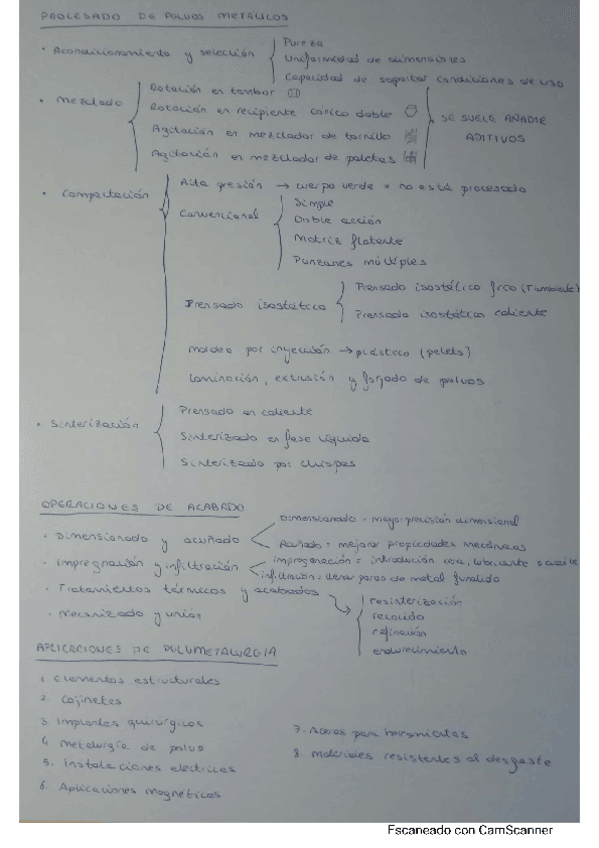 PROCESADO DE POLVOS METÁLICOS
• Acondicionamiento y selección
Pureza
Uniformidad de dimensiones
Capacidad de soportar condiciones de uso
• Mezclado
Rotación en tambor
Rotación en recipiente cónico doble
Agitación en mezclador de tornillo
Agitación en mezclador de paletas
SE SUELE AÑADIR
ADITIVOS
• Compactación
Alta presión → cuerpo verde = no está procesado
Convencional
Simple
Doble acción
Matriz flotante
Punzones múltiples
Prensado isostático
Prensado isostático frío (Tambiente)
Prensado isostático caliente
Moldeo por inyección → plástico (pelets)
Laminación, extrusión y forjado de polvos
• Sinterización
Prensado en caliente
Sinterizado en fase líquida
Sinterizado por chispas
OPERACIONES DE ACABADO
• Dimensionado y acuñado
Dimensionado = mayor precisión dimensional
Acuñado = mejorar propiedades mecánicas
• Impregnación y infiltración
impregnación = introducción cera, lubricante o aceite
infiltración = llenar poros de metal fundido
• Tratamientos térmicos y acabados
resinterización
recocido
refinación
endurecimiento
• Mecanizado y unión
APLICACIONES DE PULUMETALURGIA
1. Elementos estructurales
2. Cojinetes
3. Implantes quirúrgicos
4. Metalurgia de polvo
5. Instalaciones eléctricas
6. Aplicaciones magneticas
7. Aceros para herramientas
8. Materiales resistentes al desgaste
Escaneado con CamScanner